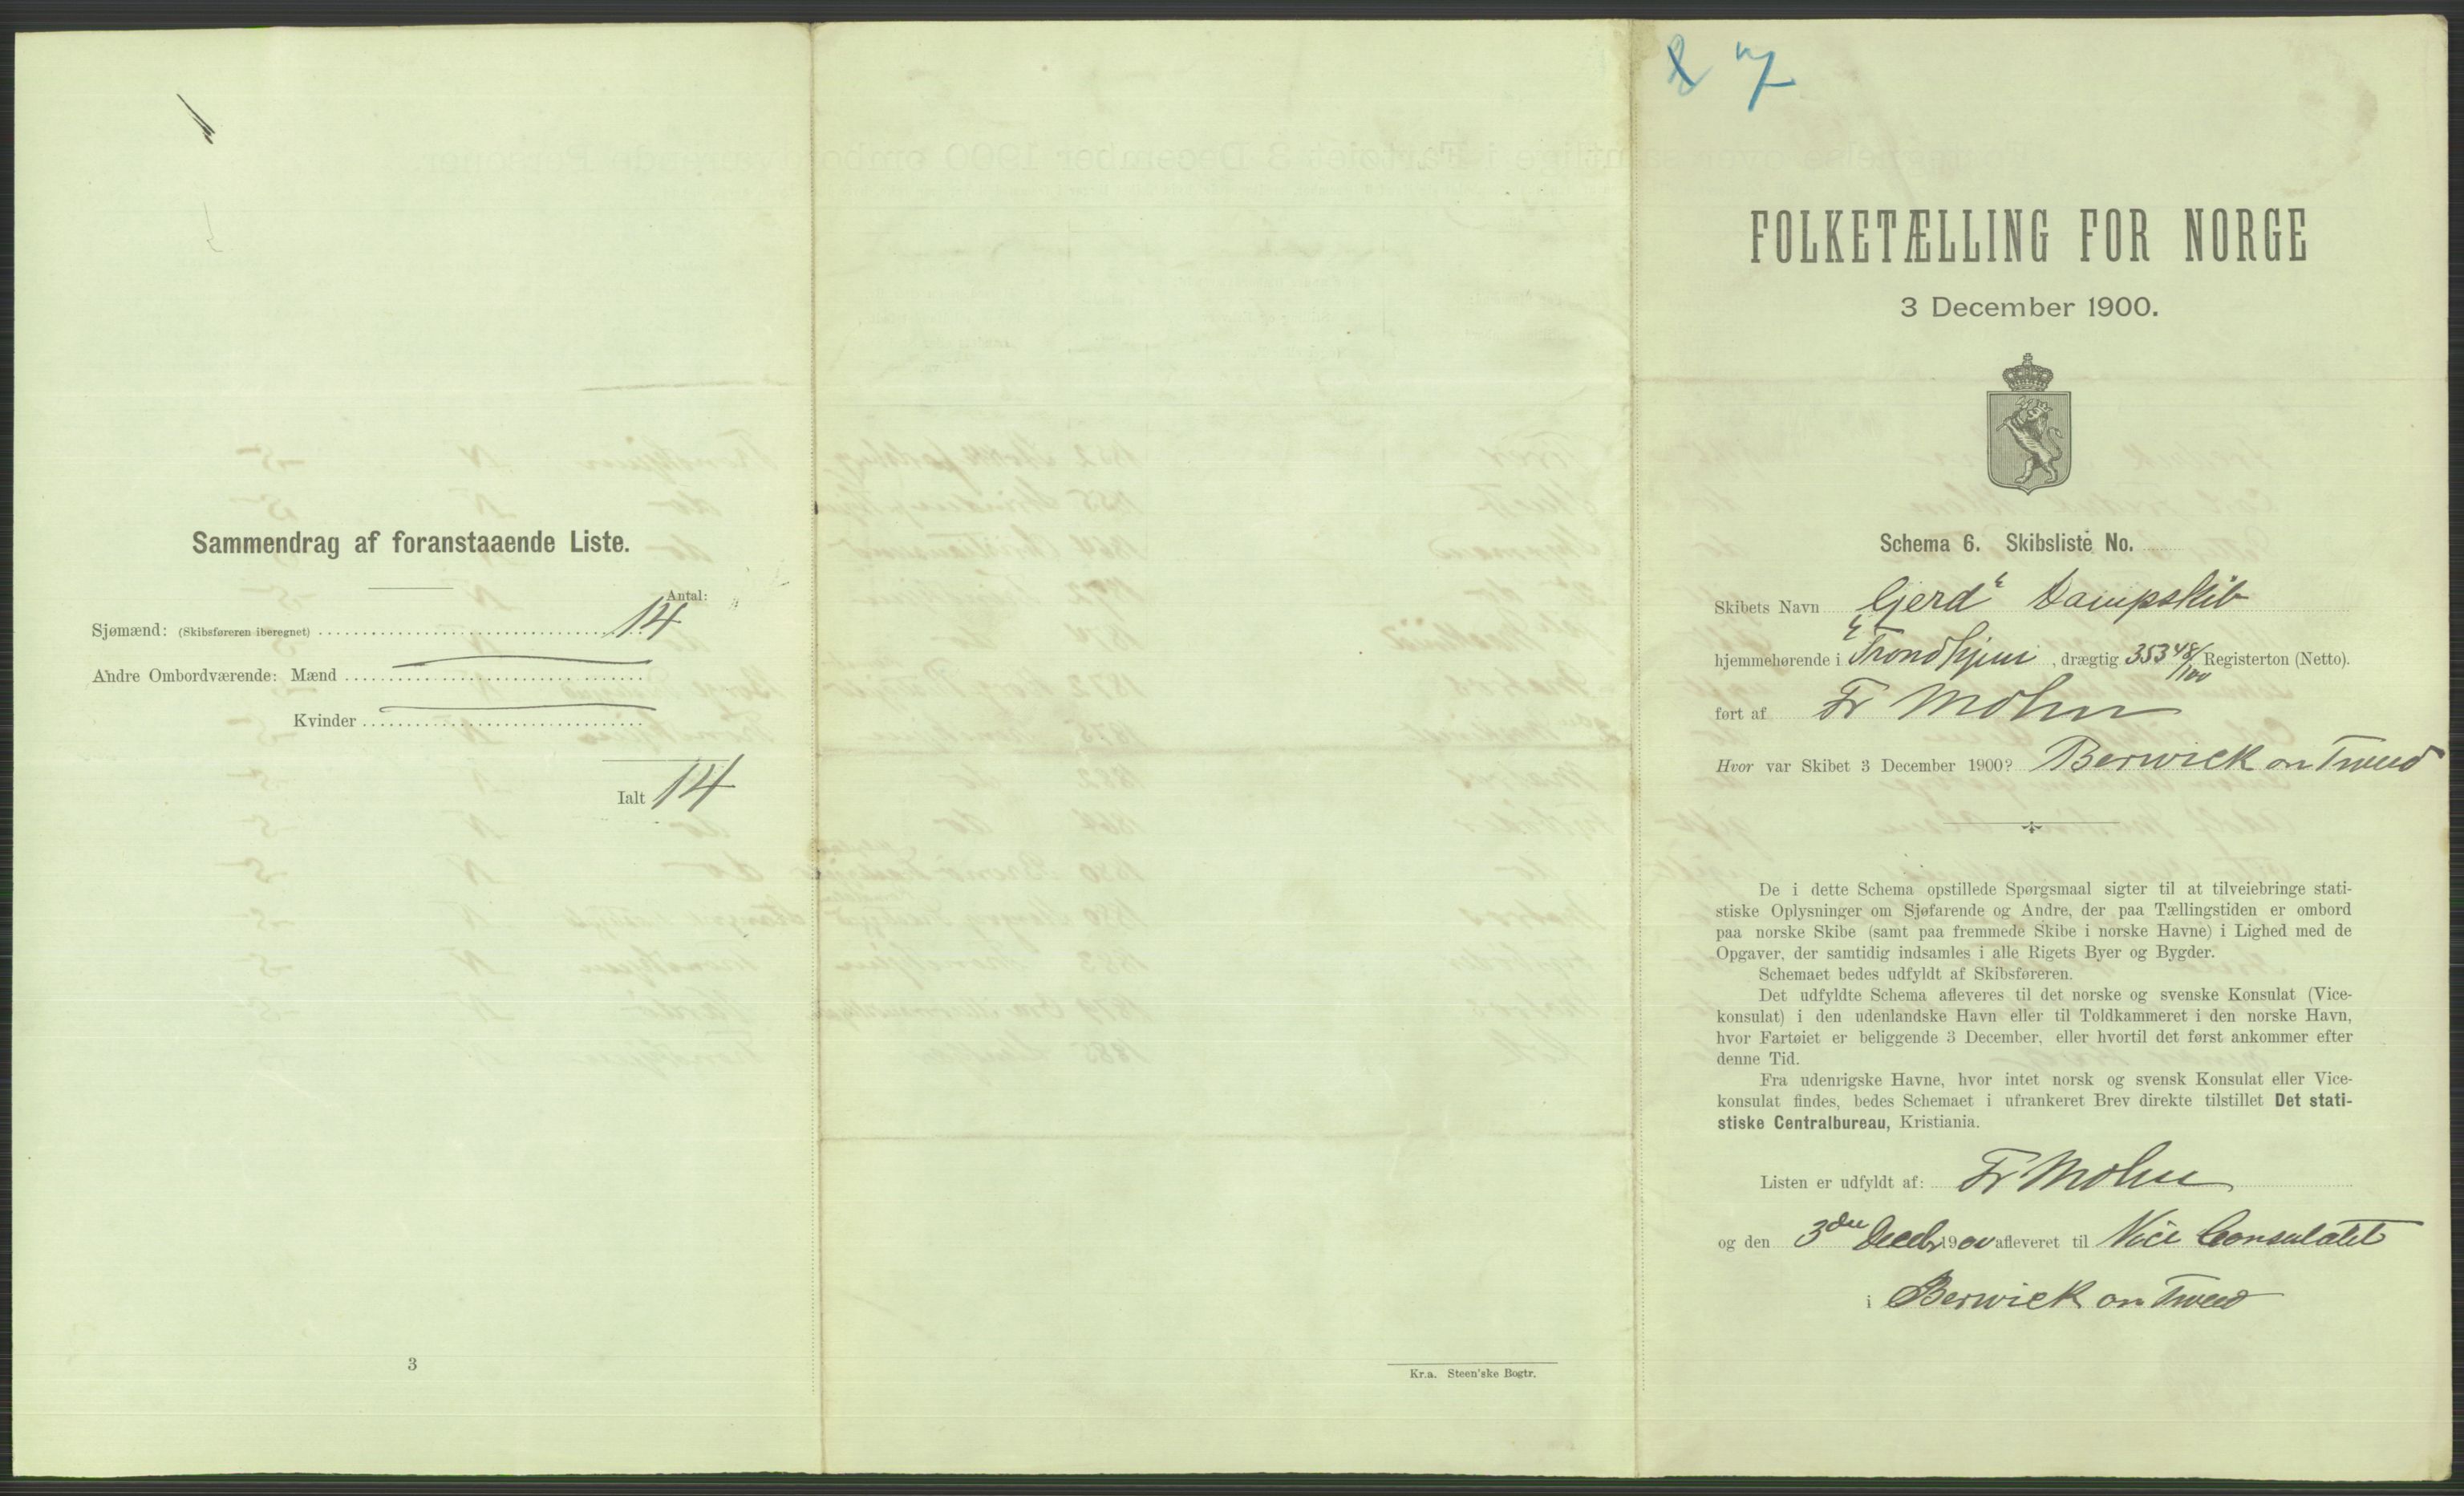 Sammendrag af foranstaaende Liste.
Antal:
Sjømænd: (Skibsføreren iberegnet) 14
Andre Ombordværende: Mænd
Kvinder
Ialt 14
3
Kr.a. Steen'ske Bogtr.
7
FOLKETÆLLING FOR NORGE
3 December 1900.
Schema 6. Skibsliste No.
Skibets Navn "Gjerd" Dampskib
hjemmehørende i Trondhjem, drægtig 353 48/100 Registerton (Netto).
ført af Fr Møhn
Hvor var Skibet 3 December 1900? Berwick on Tweed
De i dette Schema opstillede Spørgsmaal sigter til at tilveiebringe stati-
stiske Oplysninger om Sjøfarende og Andre, der paa Tællingstiden er ombord
paa norske Skibe (samt paa fremmede Skibe i norske Havne) i Lighed med de
Opgaver, der samtidig indsamles i alle Rigets Byer og Bygder.
Schemaet bedes udfyldt af Skibsføreren.
Det udfyldte Schema afleveres til det norske og svenske Konsulat (Vice-
konsulat) i den udenlandske Havn eller til Toldkammeret i den norske Havn,
hvor Fartøiet er beliggende 3 December, eller hvortil det først ankommer efter
denne Tid.
Fra udenrigske Havne, hvor intet norsk og svensk Konsulat eller Vice-
konsulat findes, bedes Schemaet i ufrankeret Brev direkte tilstillet Det stati-
stiske Centralbureau, Kristiania.
Listen er udfyldt af: Fr Møhn
og den 3die Decbr 1900 afleveret til Vice Consulatet
i Berwick on Tweed